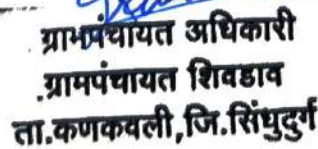 ग्रामपंचायत अधिकारी
.ग्रामपंचायत शिवडाव
ता.कणकवली,जि.सिंधुदुर्ग